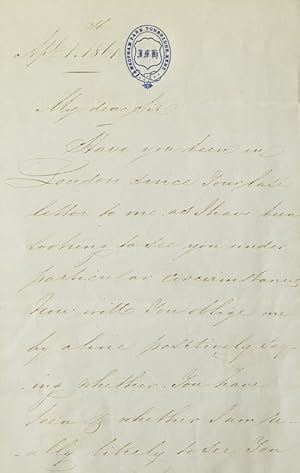 Sept 1. 1861
MEOPHAM PARK, TUNBRIDGE, KENT
My dear Sir
Have you been in
London since your last
letter to me as I have been
looking to see you under
particular circumstances
Now will You oblige me
by a line positively say-
ing whether You have
been & whether I am
likely to see You